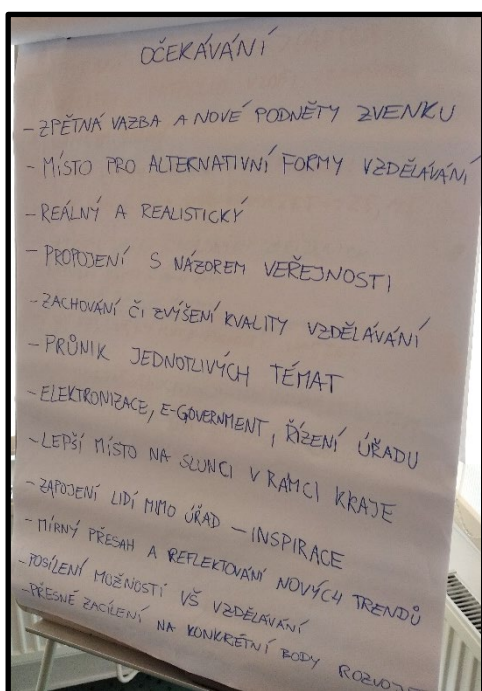 OČEKÁVÁNÍ
- ZPĚTNÁ VAZBA A NOVÉ PODNĚTY ZVENKU
- MÍSTO PRO ALTERNATIVNÍ FORMY VZDĚLÁVÁNÍ
- REÁLNÝ A REALISTICKÝ
- PROPOJENÍ S NÁZOREM VEŘEJNOSTI
- ZACHOVÁNÍ ČI ZVÝŠENÍ KVALITY VZDĚLÁVÁNÍ
- PRŮNIK JEDNOTLIVÝCH TÉMAT
- ELEKTRONIZACE, E-GOVERNMENT, ŘÍZENÍ ÚŘADU
- LEPŠÍ MÍSTO NA SLUNCI V RÁMCI KRAJE
- ZAPOJENÍ LIDÍ MIMO ÚŘAD - INSPIRACE
- MÍRNÝ PŘESAH A REFLEKTOVÁNÍ NOVÝCH TRENDŮ
- POSÍLENÍ MOŽNOSTÍ VŠ VZDĚLÁVÁNÍ
- PŘESNÉ ZACÍLENÍ NA KONKRÉTNÍ BODY